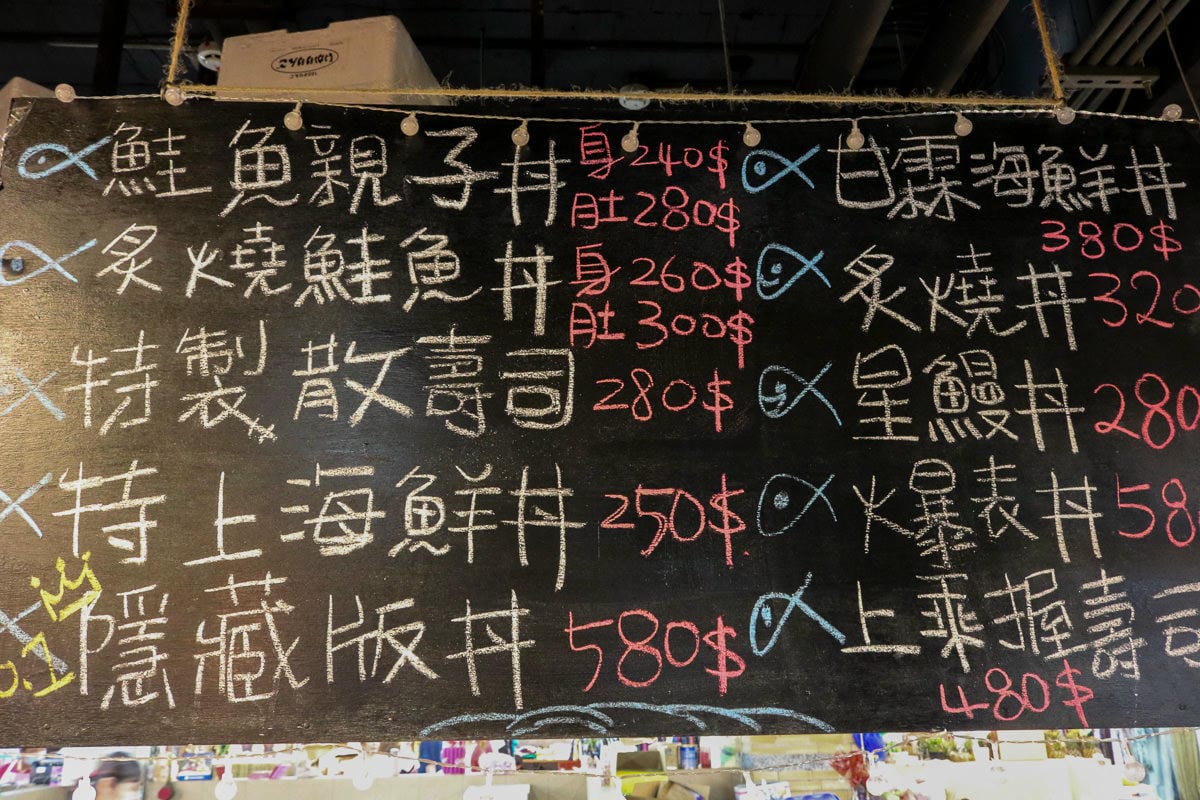 鮭魚親子丼 身240$
肚280$
炙燒鮭魚丼 身260$
肚300$
特製散壽司 280$
特上海鮮丼 250$
.1 隱藏版丼 580$
甘霖海鮮丼
380$
炙燒丼 320
星鰻丼 280
火爆表丼 58
上乘握壽司
480$